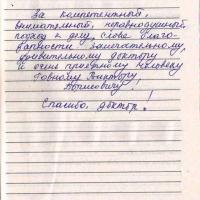 За компетентный,
внимательный, неравнодушный
подход к делу, слова благо-
дарности замечательному,
удивительному доктору
и очень приятному человеку
Виктору
Спасибо, доктор!